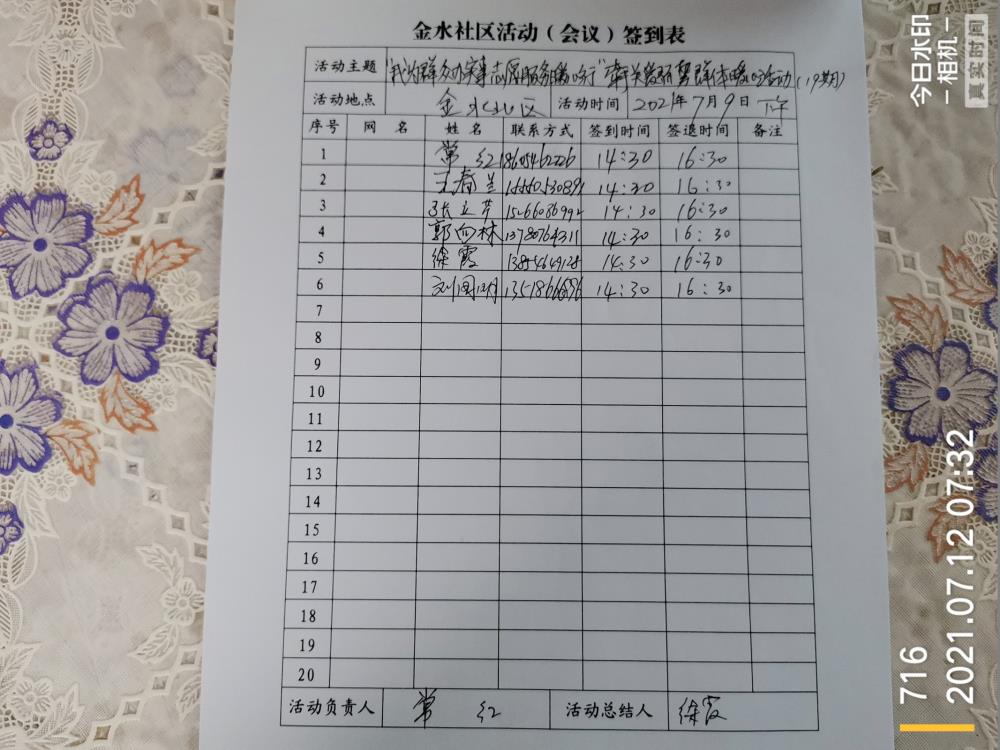 金水社区活动（会议）签到表
活动主题 "我为群众办实事志愿服务暖心行" 关爱弱势群体暖心活动（19期）
活动地点 金水北区 活动时间 2021年7月9日 下午
序号 网名 姓名 联系方式 签到时间 签退时间 备注
1 常红 18605462226 14:30 16:30
2 王春兰 14:30 16:30
3 张立芹 14:30 16:30
4 郭向林 13780764311 14:30 16:30
5 徐霞 14:30 16:30
6 14:30 16:30
7
8
9
10
11
12
13
14
15
16
17
18
19
20
活动负责人 常红 活动总结人 徐霞
今日水印
-相机-
真实时间
716
2021.07.12 07:32